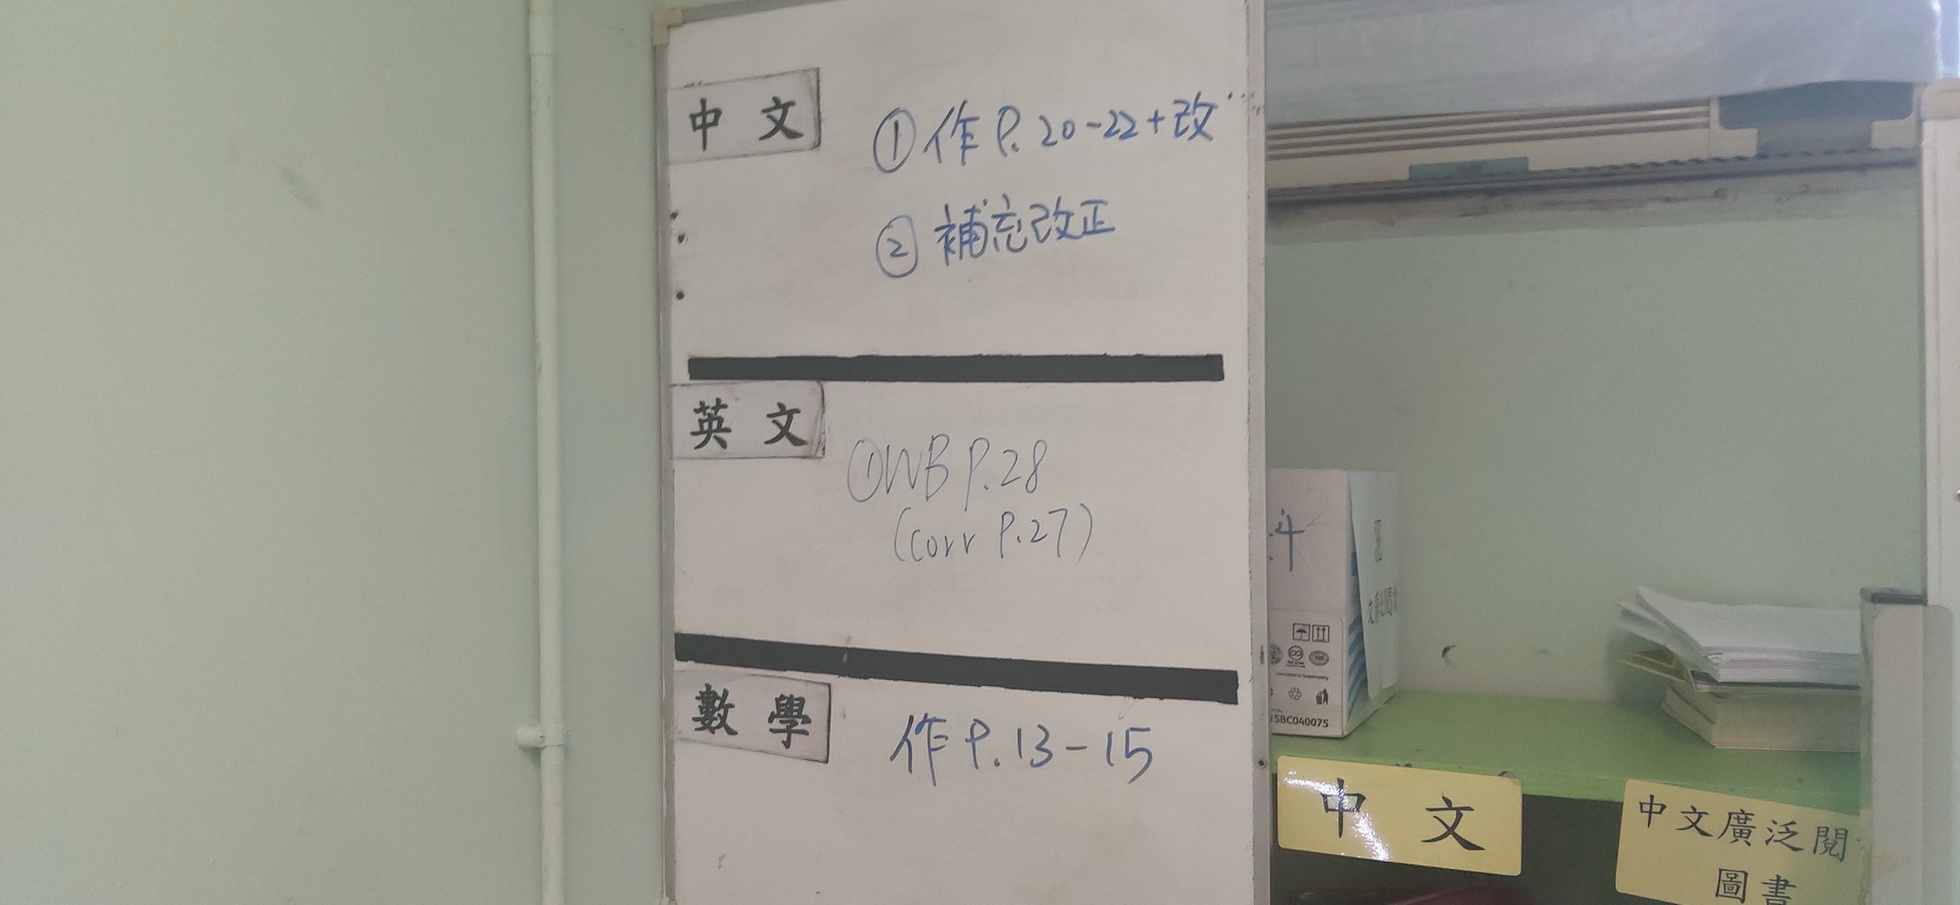 中文
①作P.20-22+改
②補充改正
英文
①WB P.28
(corr P.27)
數學
作P.13-15
15BC040075
中文
中文廣泛閱
圖書